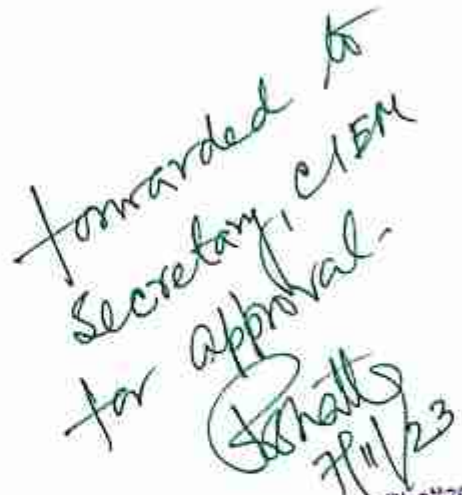 forwarded to
Secretary, CIEM
for approval.
7/11/23